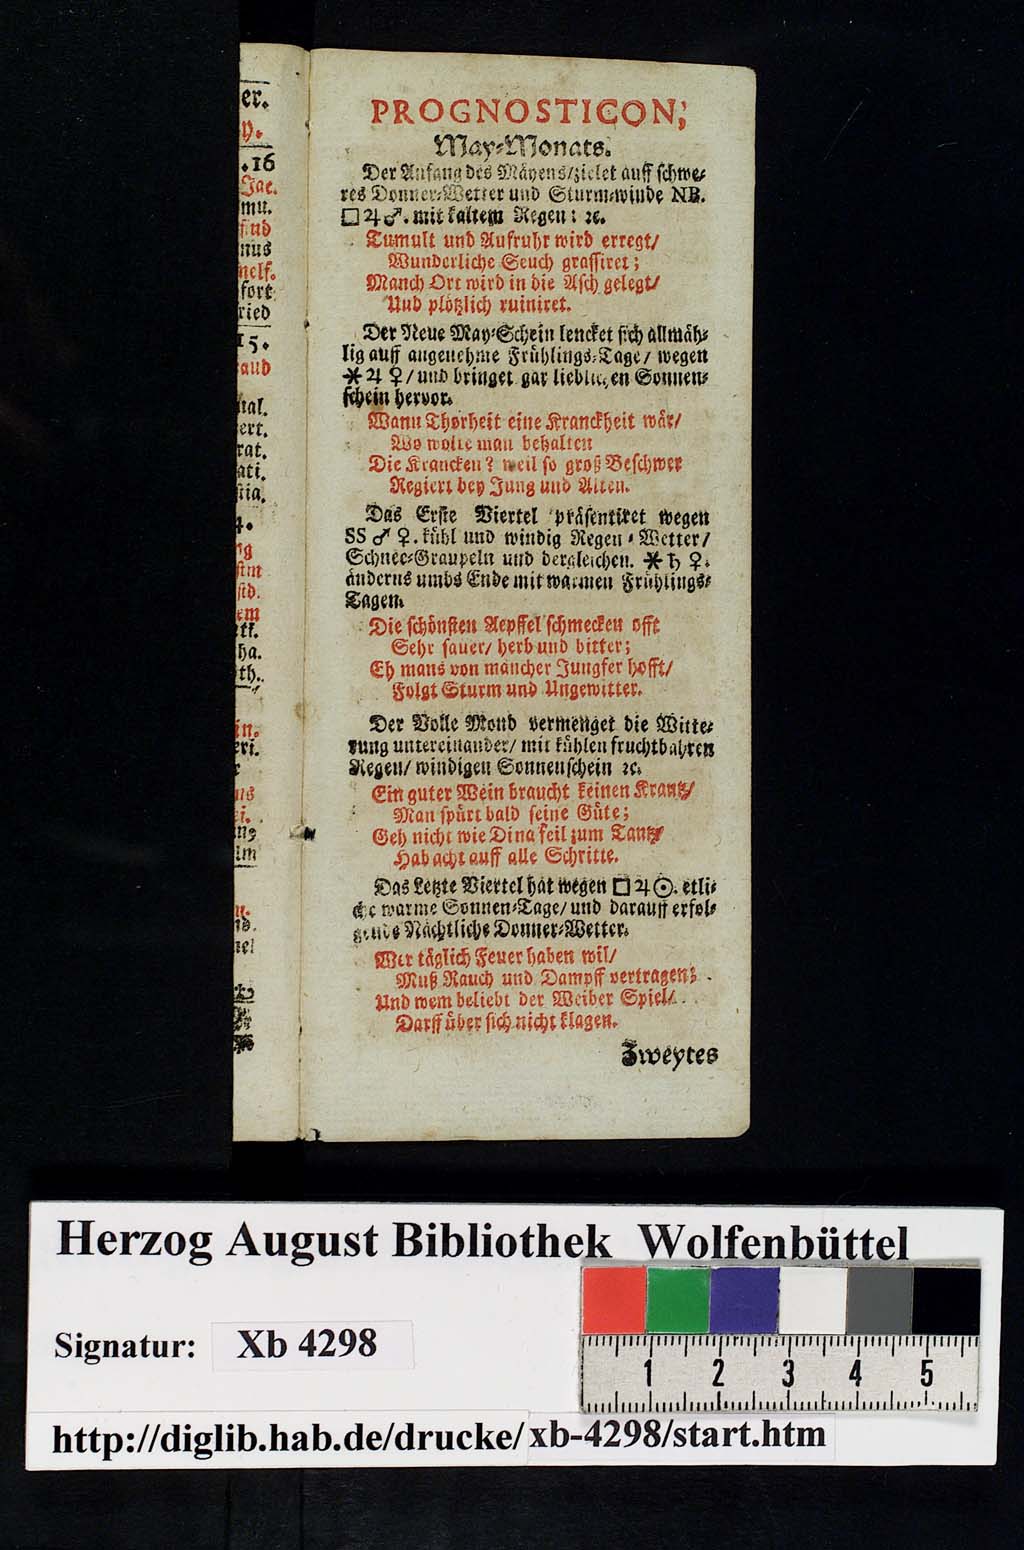 er.
y.
.16
Jac.
mu.
sind
nus
nelf.
fort
ried
15.
aud
nal.
ert.
rat.
ati.
stia.
4.
stm
std.
em
ha.
th.
in.
eri.
PROGNOSTICON,
May-Monats.
Der Anfang des Mäyens/zielet auff schwe-
res Donner-Wetter und Sturm-winde NB.
□ ♃ ♂. mit kaltem Regen: ꝛc.
Tumult und Aufruhr wird erregt/
Wunderliche Seuch grassiret;
Manch Ort wird in die Asch gelegt/
Und plötzlich ruiniret.
Der Neue May-Schein lencket sich allmäh-
lig auff angenehme Frühlings-Tage/ wegen
⚹ ♃ ♀/ und bringet gar lieblichen Sonnen-
schein hervor.
Wann Thorheit eine Kranckheit wär/
Wo wolte man behalten
Die Krancken? weil so groß Beschwer
Regiert bey Jung und Alten.
Das Erste Viertel präsentiret wegen
SS ♂ ♀. kühl und windig Regen-Wetter/
Schnee-Graupeln und dergleichen. ⚹ ♄ ♀.
änderns umbs Ende mit warmen Frühlings-
Tagen.
Die schönsten Aepffel schmecken offt
Sehr sauer/ herb und bitter;
Eh mans von mancher Jungfer hofft/
Folgt Sturm und Ungewitter.
Der Volle Mond vermenget die Witte-
rung untereinander/ mit kühlen fruchtbahren
Regen/ windigen Sonnenschein ꝛc.
Ein guter Wein braucht keinen Krantz/
Man spürt bald seine Güte;
Geh nicht wie Dina feil zum Tantz/
Hab acht auff alle Schritte.
Das Letzte Viertel hat wegen □ ♃ ☉. etli-
che warme Sonnen-Tage/ und darauff erfol-
gende Nächtliche Donner-Wetter.
Wer täglich Feuer haben wil/
Muß Rauch und Dampff vertragen;
Und wem beliebt der Weiber Spiel/
Darff über sich nicht klagen.
Zweytes
Herzog August Bibliothek Wolfenbüttel
Signatur: Xb 4298
1 2 3 4 5
http://diglib.hab.de/drucke/xb-4298/start.htm